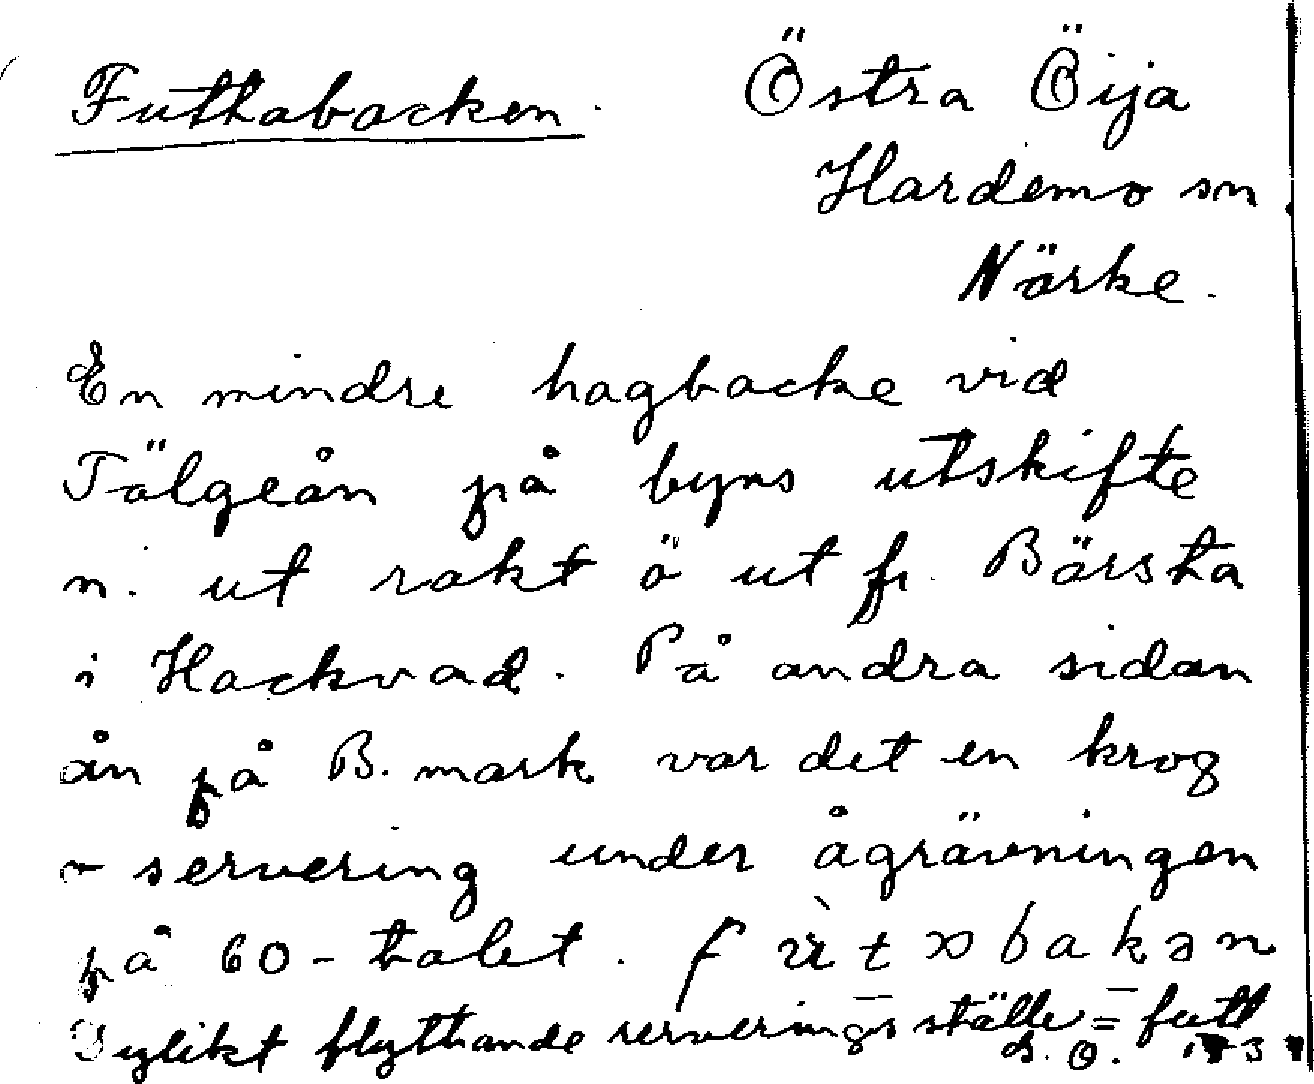 Futtabacken. Östra Öija
Hardemo sn
Närke.
En mindre hagbacke vid
Tälgeån på byns utskifte
n. ut rakt ö ut fr. Bärsta
i Hackvad. På andra sidan
ån på B. mark var det en krog
servering under ågrävningen
på 60-talet.
Dylikt flyttande serveringsställe = futt